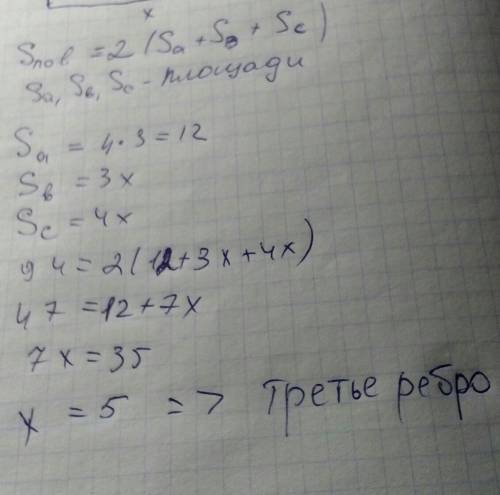 x
Sпов = 2 (Sa + Sв + Sc)
Sa, Sв, Sc - площади
Sa = 4·3 = 12
Sв = 3x
Sc = 4x
94 = 2(12+3x+4x)
47 = 12+7x
7x = 35
x = 5 => Третье ребро